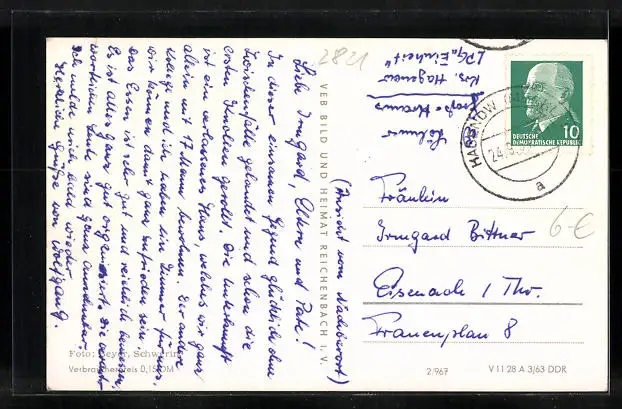 Liebe Irmgard, Eltern und Pate!
In dieser einsamen Gegend glücklich ohne
Zwischenfälle gelandet und schon die
ersten Knollen gerollt. Die Unterkunft
ist ein verlassenes Haus, welches wir ganz
allein mit 17 Mann bewohnen. Der andere
Kollege und ich haben ein Zimmer für uns,
wir können damit ganz zufrieden sein,
das Essen ist sehr gut und reichlich bemessen.
Es ist alles ganz gut organisiert. Die verant-
wortlichen Leute sind ganz annehmbar.
Ich melde mich bald wieder
Herzliche Grüße von Wolfgang.
VEB BILD UND HEIMAT REICHENBACH I. V.
(Ansicht von
2821
LPG „Einheit"
Krs. Hagenow
Groß-Krams
HAGENOW
24.9.
a
DEUTSCHE
DEMOKRATISCHE REPUBLIK
10
6-€
Fräulein
Irmgard Bittner
Eisenach / Thr.
Frauenplan 8
Foto: Beyer, Schwerin
Verbraucherpreis 0,15 DM
2/967
V 11 28 A 3/63 DDR